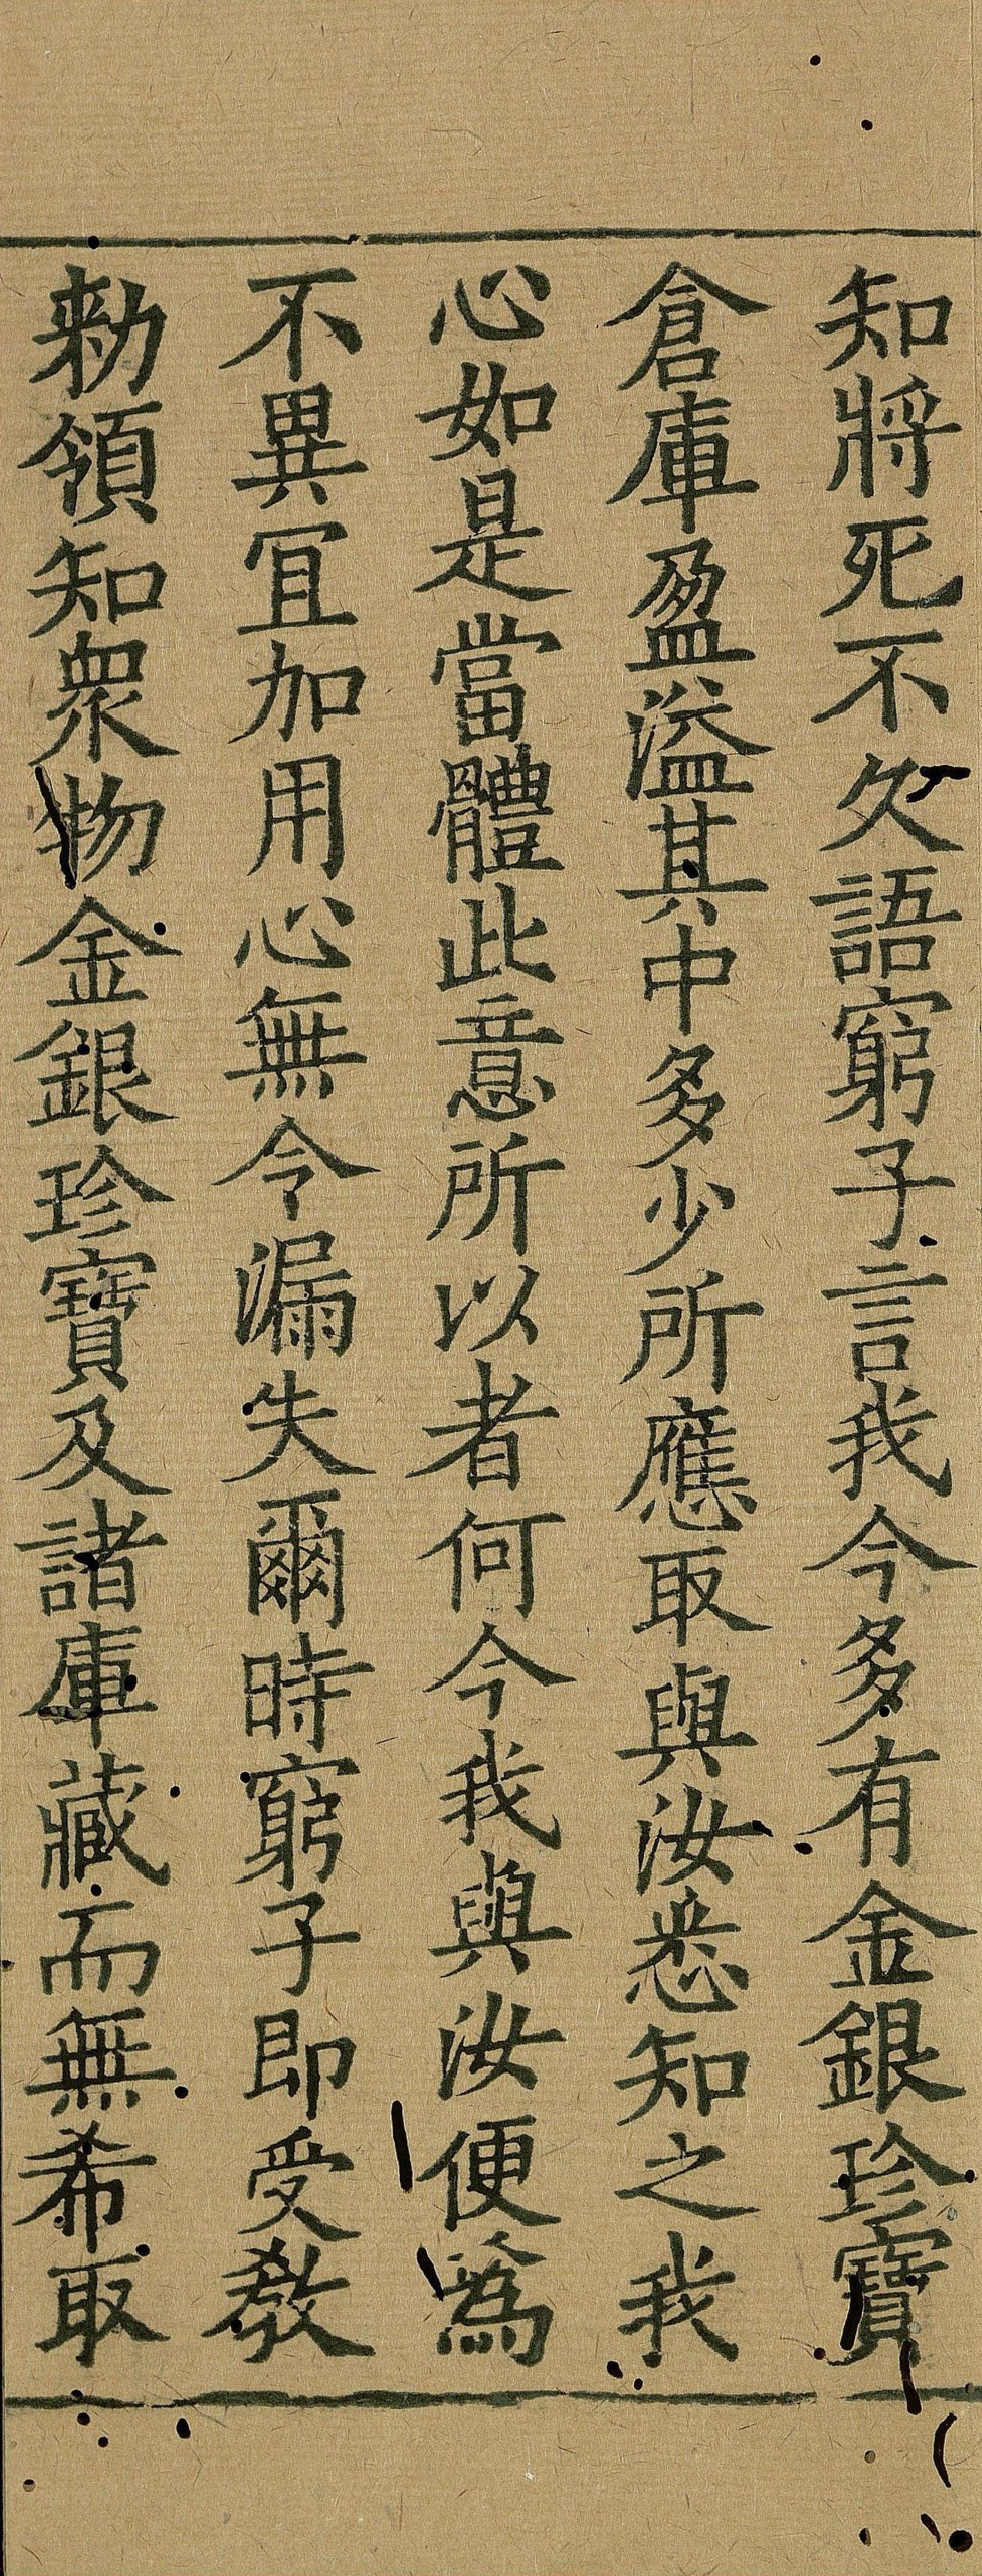 知將死不久語窮子言我今多有金銀珍寶
倉庫盈溢其中多少所應取與汝悉知之我
心如是當體此意所以者何今我與汝便為
不異宜加用心無令漏失爾時窮子即受教
勑領知衆物金銀珍寶及諸庫藏而無希取